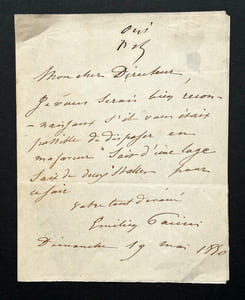 oui
Mon cher Directeur,
Je vous serais bien recon-
naissant s'il vous était
possible de disposer en
ma faveur soit d'une loge
soit de deux stalles pour
ce soir
votre tout dévoué
Dimanche 19 mai